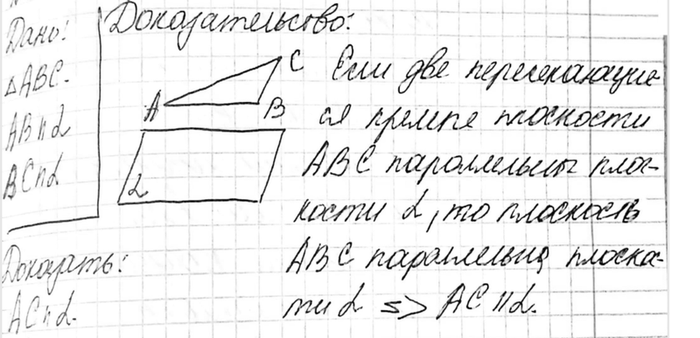 Дано:
△ABC.
AB ∥ α
BC ∥ α
Доказать:
AC ∥ α.
Доказательство:
A B C
α
Если две пересекающие-
ся прямые плоскости
ABC параллельны плос-
кости α, то плоскость
ABC параллельна плоскос-
ти α => AC ∥ α.